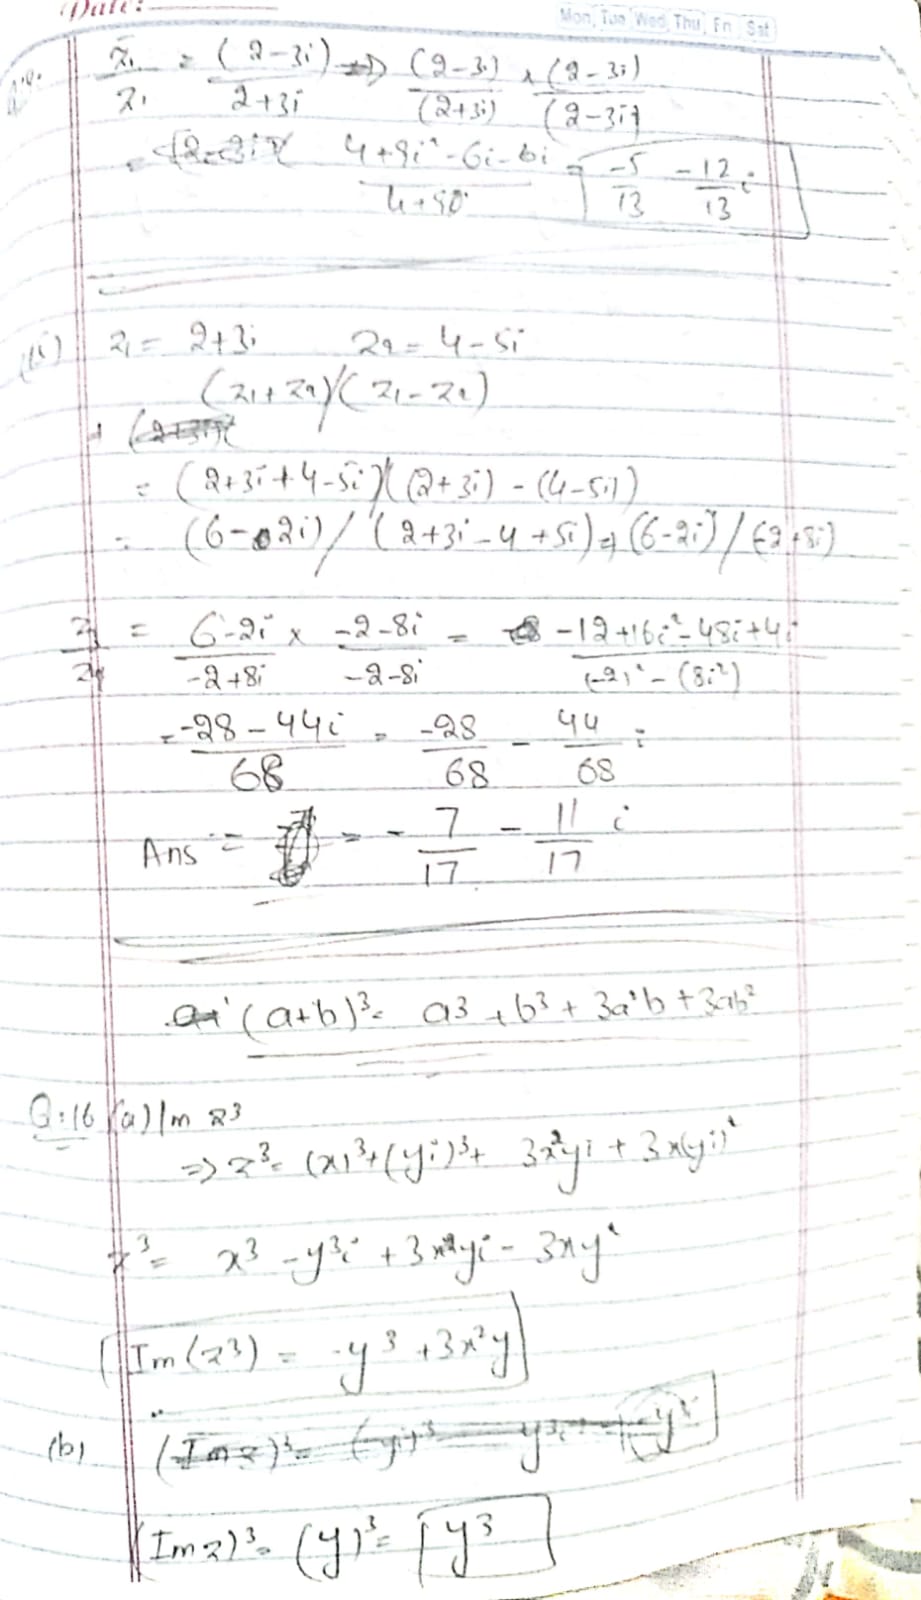 Date:
Mon Tue Wed Thu Fri Sat
z̄₁/z₁ = (2-3i)/2+3i ⇒ (2-3i)/(2+3i) × (2-3i)/(2-3i)
= 4+9i²-6i-6i / 4+9 = -5/13 -12/13 i
z₁ = 2+3i z₂ = 4-5i
(z₁+z₂)/(z₁-z₂)
= (2+3i+4-5i)/((2+3i) - (4-5i))
= (6-2i)/(2+3i-4+5i) ⇒ (6-2i)/(-2+8i)
= 6-2i/-2+8i × -2-8i/-2-8i = -12+16i²-48i+4i/(-2)²-(8i²)
= -28-44i/68 = -28/68 - 44/68 i
Ans = = - 7/17 - 11/17 i
(a+b)³ = a³ + b³ + 3a²b + 3ab²
Q:16 (a) Im z³
⇒ z³ = (x)³+(yi)³+ 3x²yi + 3x(yi)²
z³ = x³ - y³i + 3x²yi - 3xy²
Im(z³) = -y³ + 3x²y
(b)
(Im z)³ = (y)³ = y³